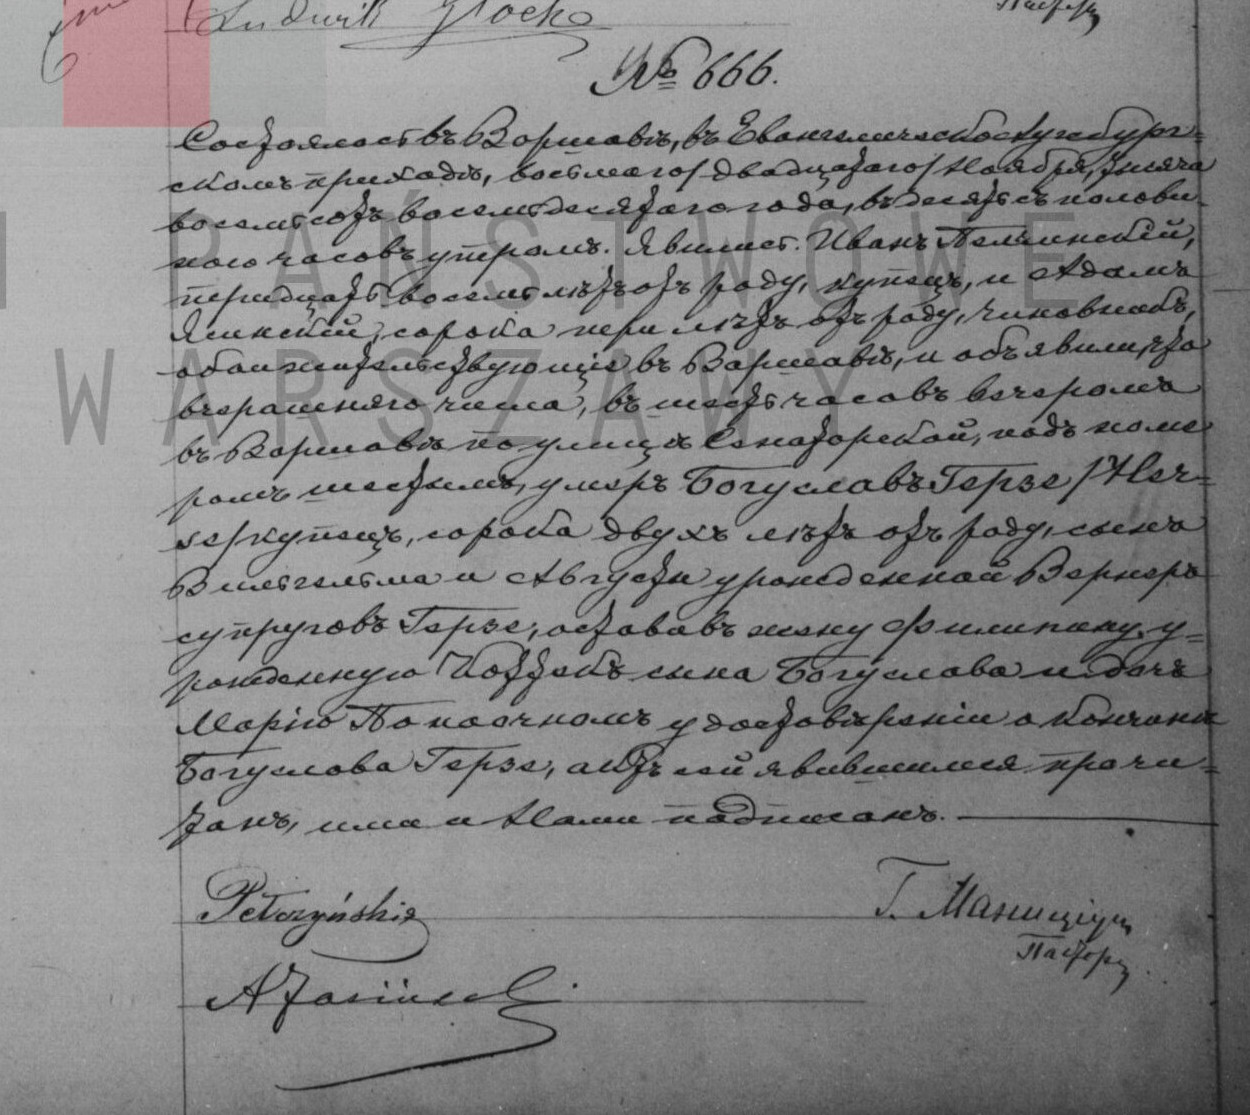 Ludwik Glock
Пасторъ
№ 666.
Состоялось въ Варшавѣ, въ Евангелическо Аугсбург=
скомъ приходѣ, восьмаго/двадцатаго/Ноября, тысяча
восемьсотъ восемьдесятаго года, въ десять съ полови-
ною часовъ утромъ. Явились: Иванъ Пельчинскій,
тридцать восемь лѣтъ отъ роду, купецъ, и Адамъ
Ясинскій, сорока три лѣтъ отъ роду, чиновникъ,
оба жительствующіе въ Варшавѣ, и объявили, что
вчерашняго числа, въ шесть часовъ вечеромъ
въ Варшавѣ по улицѣ Сенаторской, подъ номе
ромъ шестымъ, умеръ Богуславъ Герзе /Her-
se/ купецъ, сорока двухъ лѣтъ отъ роду, сынъ
Вильгельма и Августы урожденной Вернеръ
супруговъ Герзе, оставивъ жену Филипину, у=
рожденную сына Богуслава и дочь
Марію По наочномъ удостовѣреніи о кончинѣ
Богуслава Герзе, актъ сей явившимся прочи=
танъ, ими и Нами подписанъ.
Pełczyński
Г. Маниціусъ
Пасторъ
A Jasiński
PAŃSTWOWE
WARSZAWY